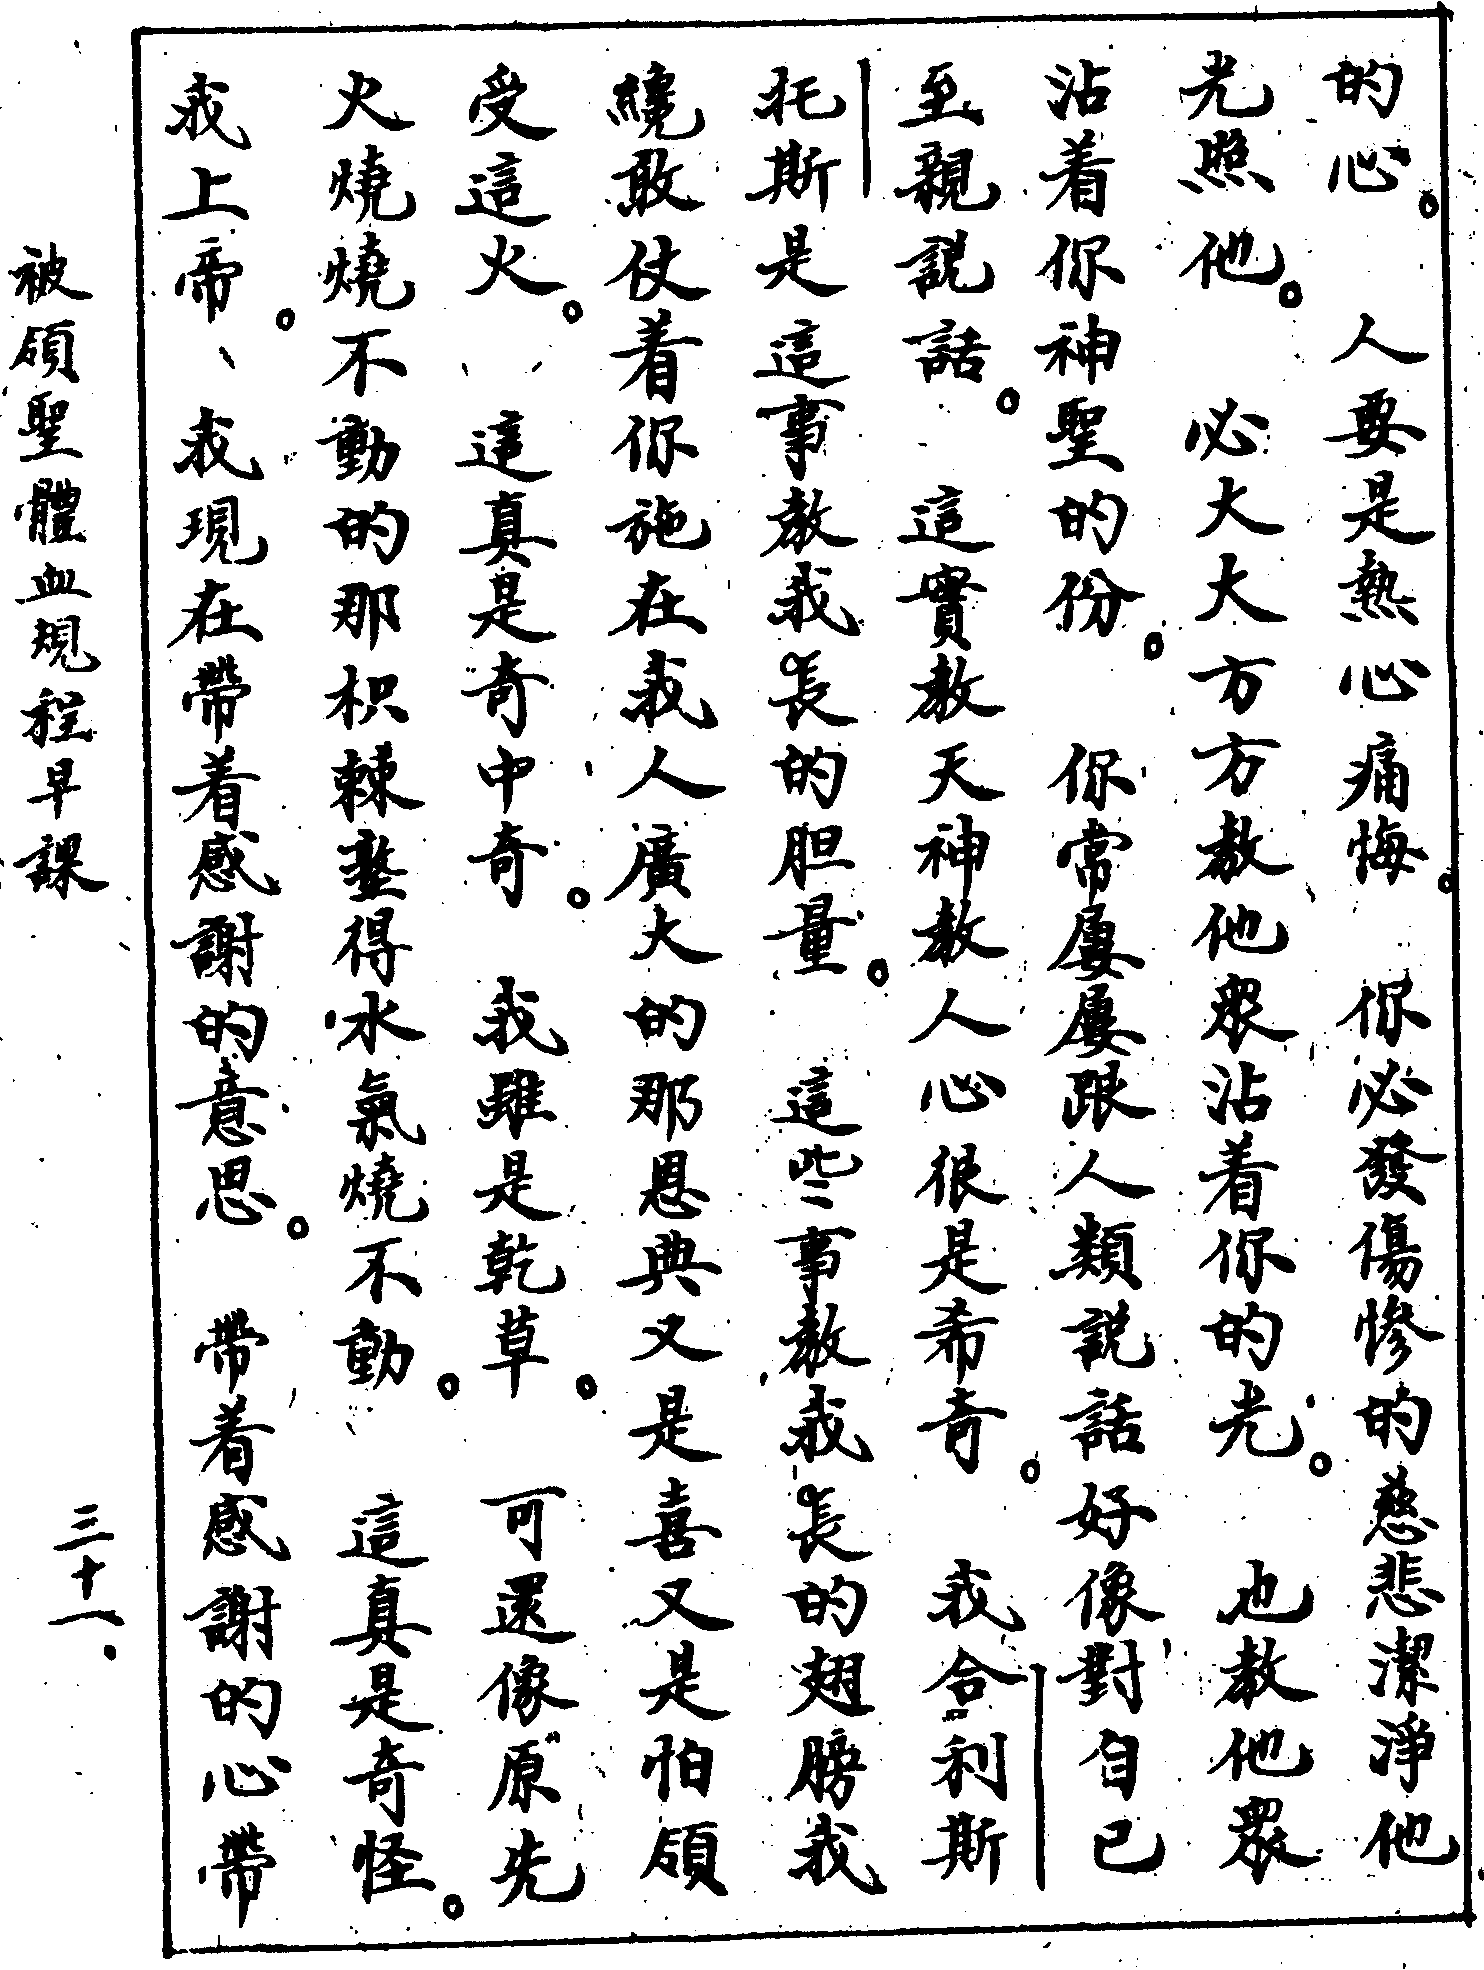 的心。人要是熱心痛悔。你必發傷慘的慈悲潔淨他
光照他。必大大方方教他衆沾着你的光。也教他衆
沾着你神聖的份。你常屢屢跟人類説話好像對自己
至親説話。這實教天神教人心很是希奇。我合利斯
托斯是這事教我長的胆量。這些事教我長的翅膀我
纔敢仗着你施在我人廣大的那恩典又是喜又是怕領
受這火。這真是奇中奇。我雖是乾草。可還像原先
火燒燒不動的那枳棘整得水氣燒不動。這真是奇怪。
我上帝。、我現在帶着感謝的意思。帶着感謝的心帶
被領聖體血規程早課
三十一.